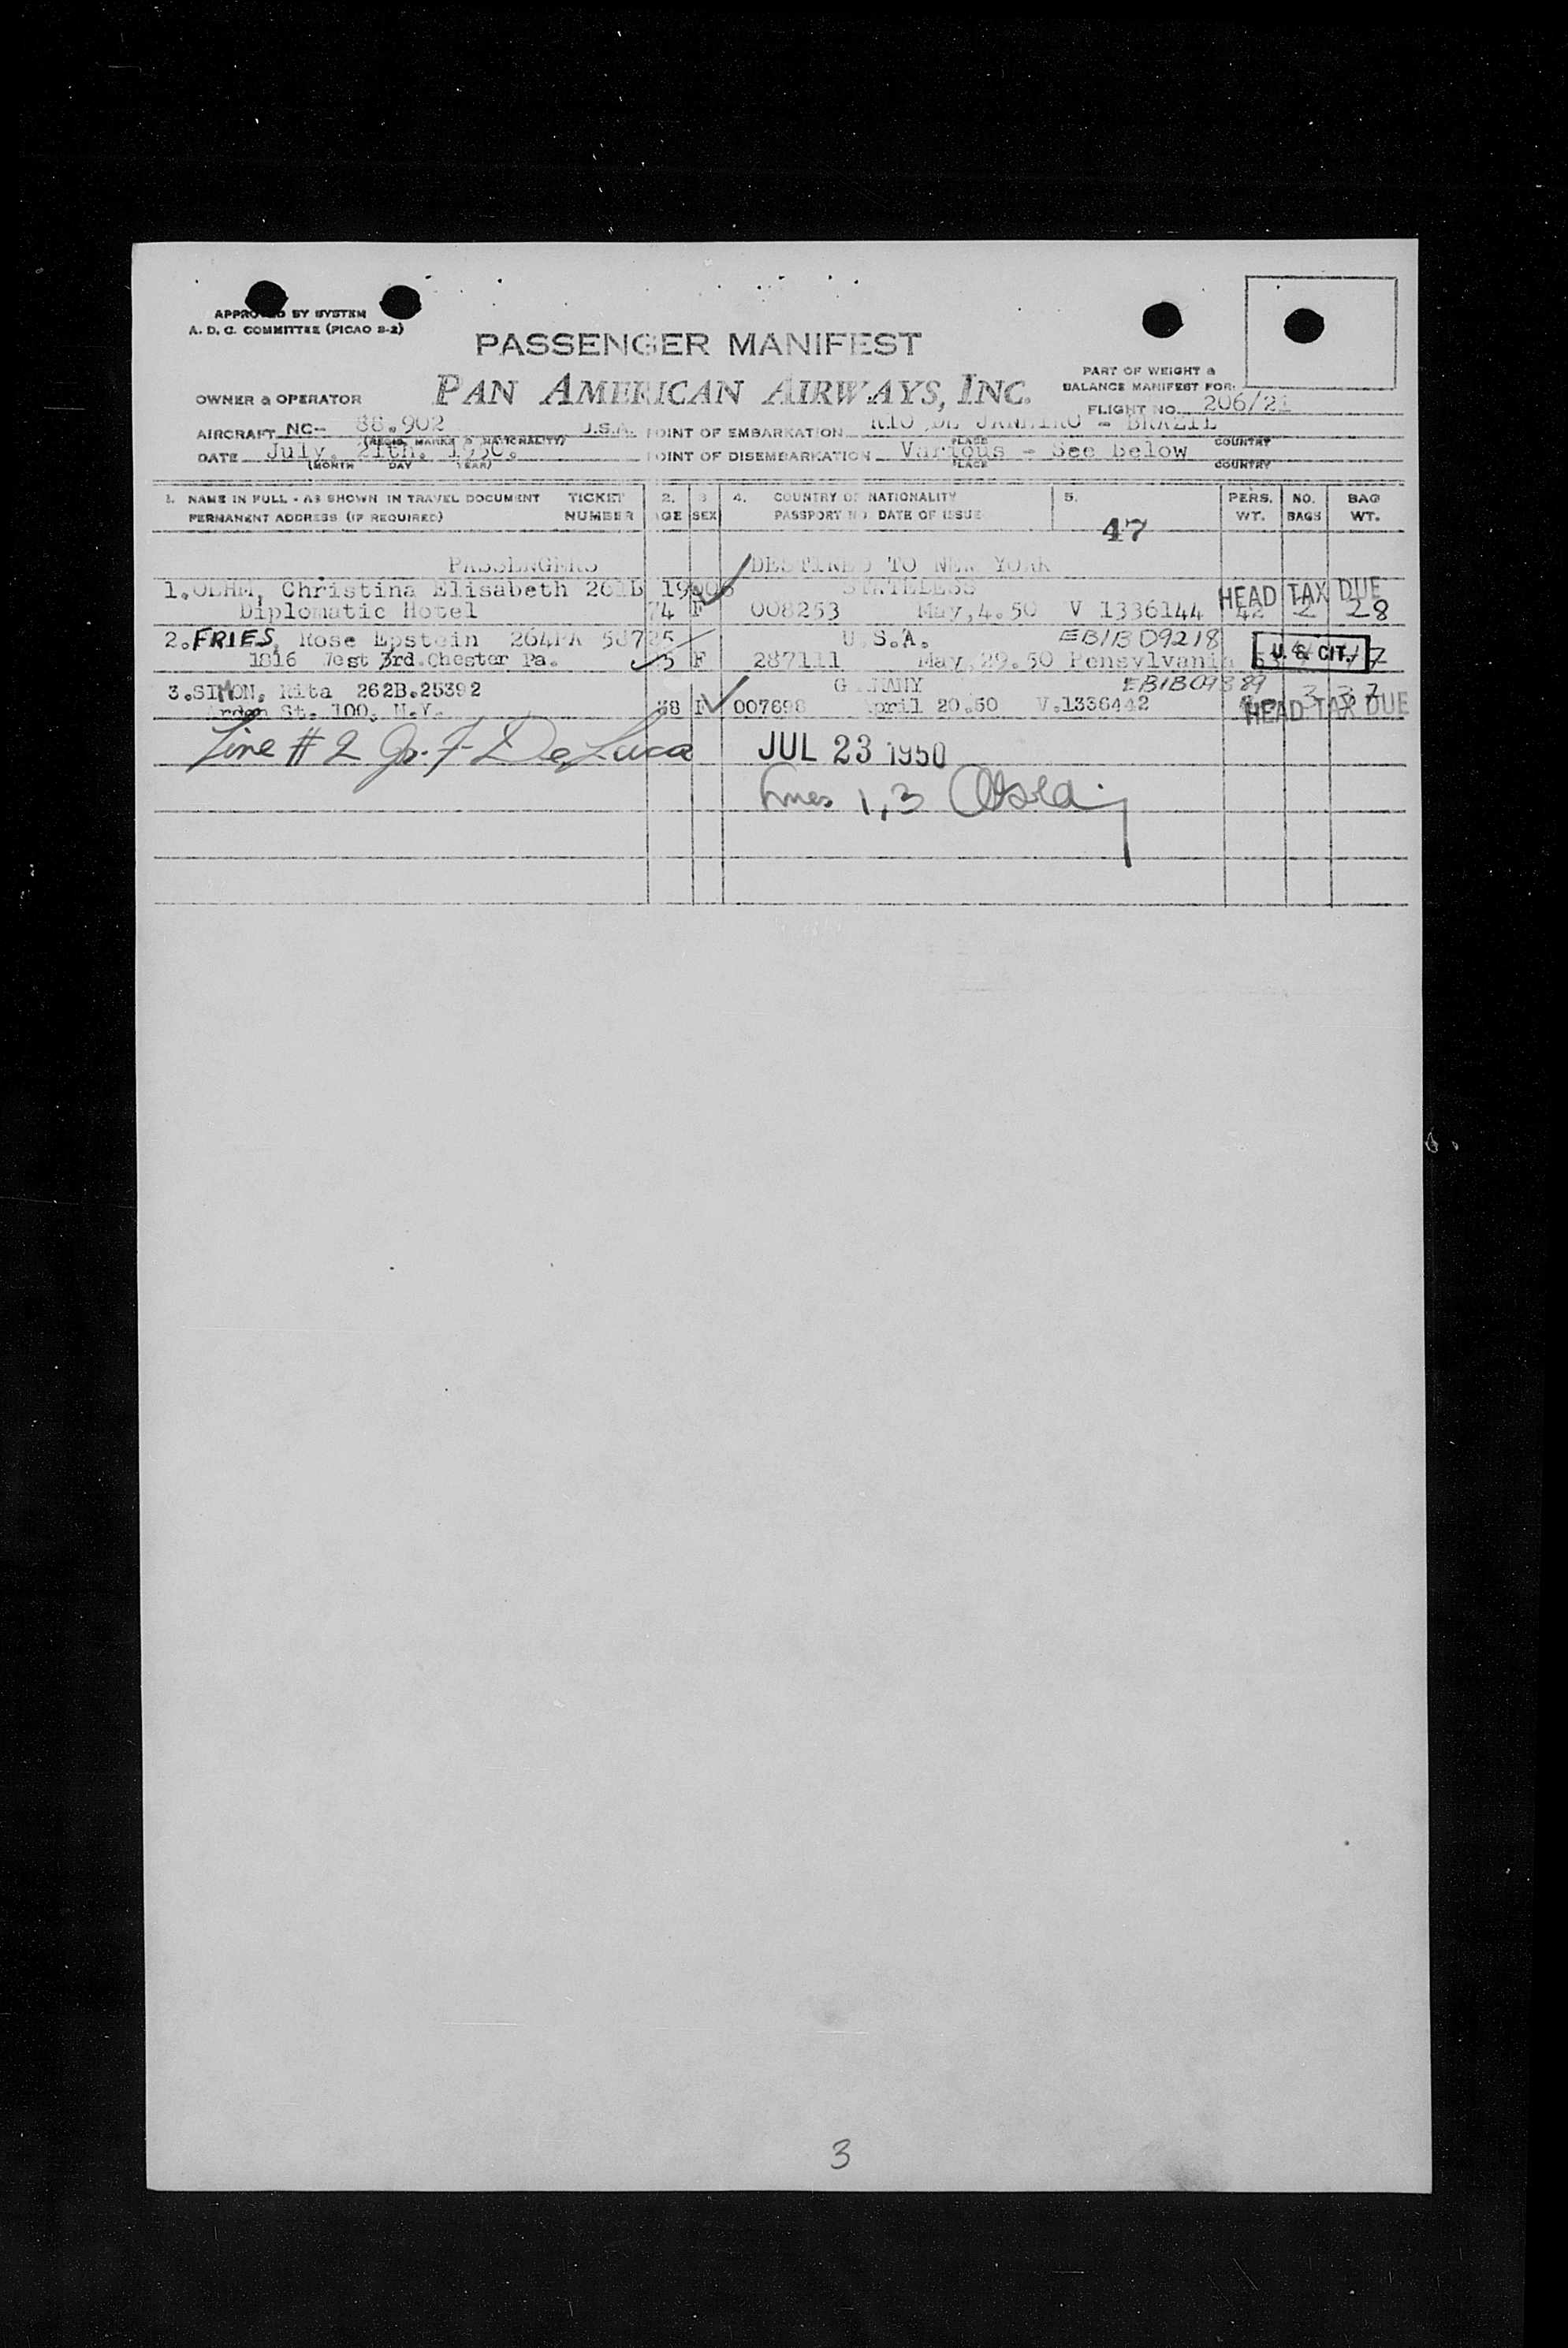 APPROVED BY SYSTEM
A. D. C. COMMITTEE (PICAO S-2)
PASSENGER MANIFEST
PART OF WEIGHT &
BALANCE MANIFEST FOR:
OWNER & OPERATOR PAN AMERICAN AIRWAYS, INC.
FLIGHT NO. 206/21
AIRCRAFT NC- 88.902 U.S.A. POINT OF EMBARKATION RIO DE JANEIRO - BRAZIL
(REGIS. MARKS & NATIONALITY) PLACE COUNTRY
DATE July, 21th. 1950. POINT OF DISEMBARKATION Various - See below
(MONTH DAY YEAR) PLACE COUNTRY
1. NAME IN FULL - AS SHOWN IN TRAVEL DOCUMENT TICKET 2. 3 4. COUNTRY OF NATIONALITY 5. PERS. NO. BAG
PERMANENT ADDRESS (IF REQUIRED) NUMBER AGE SEX PASSPORT NO DATE OF ISSUE WT. BAGS WT.
47
PASSENGERS DESTINED TO NEW YORK
1. Christina Elisabeth 261B STATELESS HEAD TAX DUE
Diplomatic Hotel 74 F 008253 May,4.50 V 1336144 42 2 28
2.FRIES, Rose Epstein U.S.A. EB1B09218
1816 West 3rd.Chester Pa. F 287111 May,29.50 Pensylvania U. S. CIT.
3.SIMON, Rita 262B.25392 GERMANY EB1B09389
Arden St. 100, N.Y. 38 F 007698 April 20.50 V.1336442 3 37
HEAD TAX DUE
Line # 2 De Luca JUL 23 1950
Lines 1,3
3